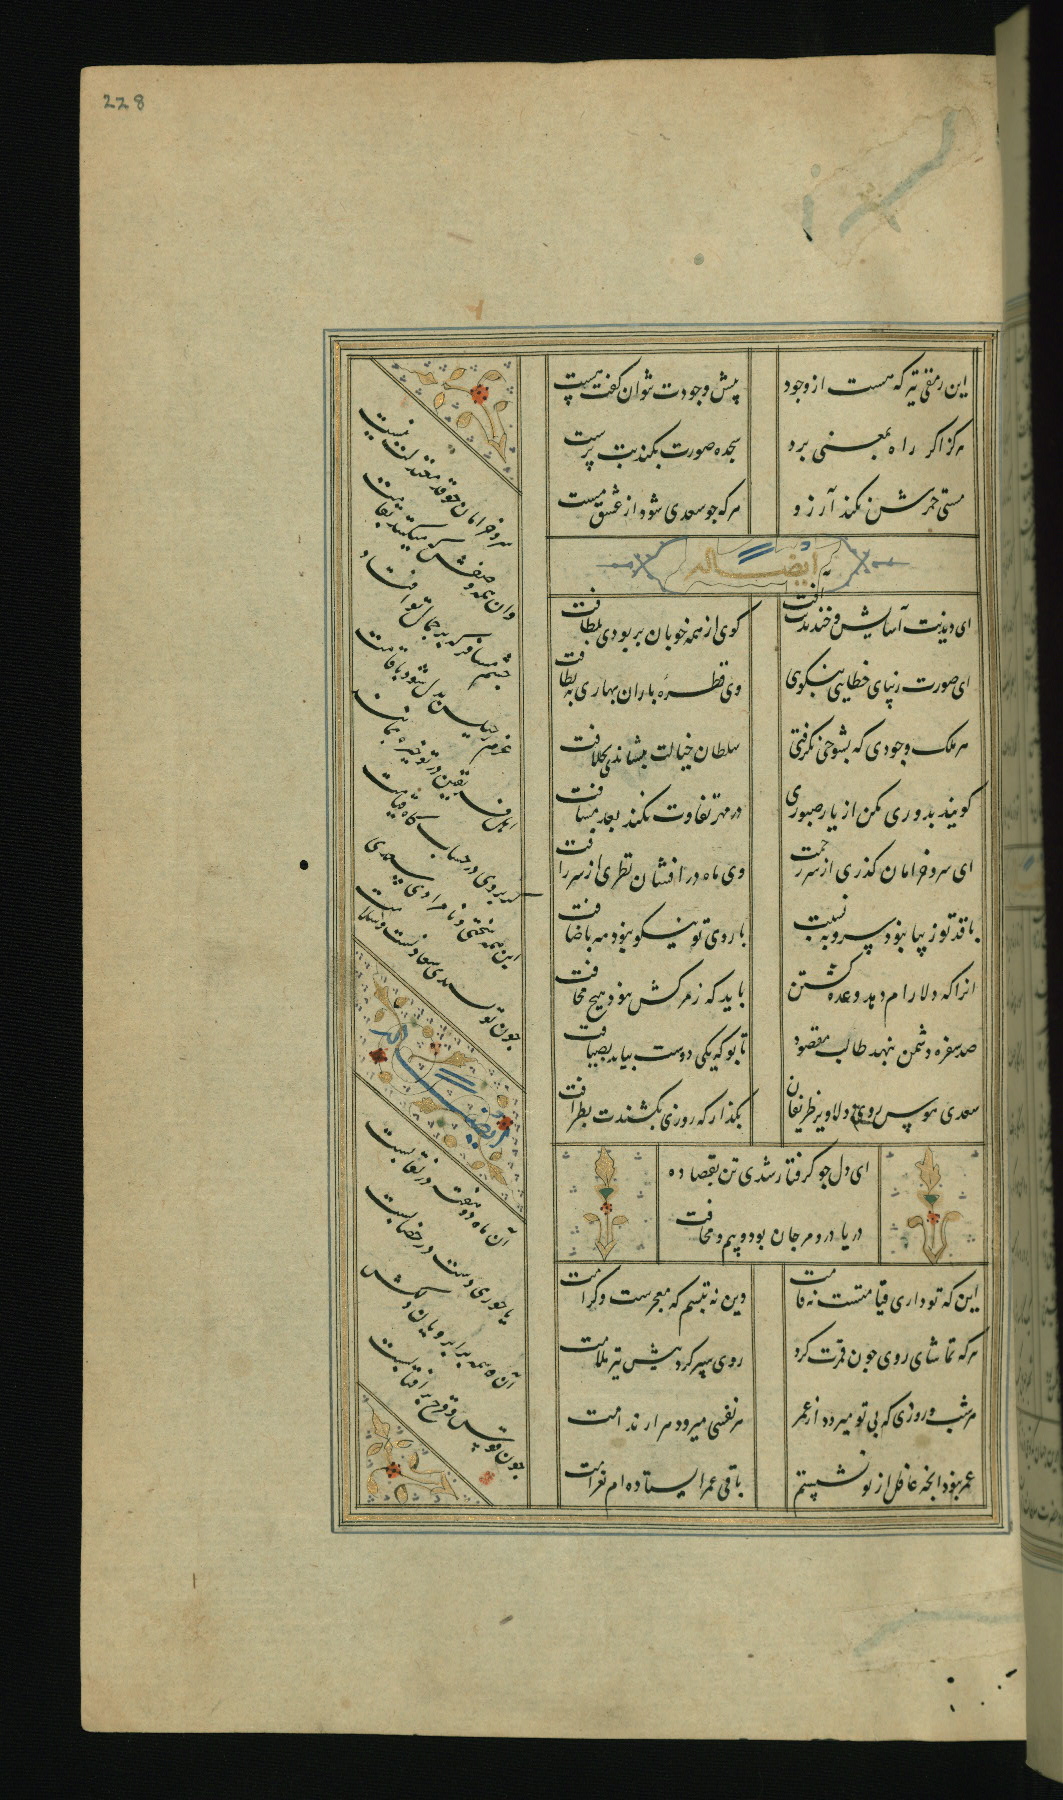 228
این رمقی نیز که هست از وجود
پیش وجودت نتوان گفت هست
هرگز اگر راه بمعنی برد
سجده صورت نکند بت پرست
مستی خمرش نکند آرزو
هر که چو سعدی شود از عشق مست
ایضاً له
ای دیدنت آسایش و خندیدنت آفت
گوی از همه خوبان بربودی بلطافت
ای صورت زیبای خطایی بنکوی
وی قطره باران بهاری بنظافت
هر ملک وجودی که بشوخی بگرفتی
سلطان خیالت بنشاندی بخلافت
گویند بدوری مکن از یار صبوری
در مهر تفاوت نکند بعد مسافت
ای سرو خرامان گذری از سر رحمت
وی ماه درافشان نظری از سر رافت
با قد تو زیبا نبود سرو بنسبت
با روی تو نیکو نبود مه باضافت
انرا که دلارام دهد وعده کشتن
باید که ز مرگش نبود هیچ مخافت
صد سفره دشمن بنهد طالب مقصود
تا بو که یکی دوست بیاید بضیافت
سعدی هوس روی دلاویز ظریفان
بگذار که روزی بکشندت بظرافت
ای دل چو گرفتار شدی تن بقضا ده
دریا در و مرجان بود و بیم و مخافت
این که تو داری قیامتست نه قامت
وین نه تبسم که معجزست و کرامت
هر که تماشای روی چون قمرت کرد
روی سپر کرد پیش تیر ملامت
هر شب و روزی که بی تو میرود از عمر
هر نفسی میرود هزار ندامت
عمر نبود انچه غافل از تو نشستم
باقی عمر ایستاده ام بغرامت
سرو خرامان چو قد معتدلت نیست
وان همه وصفش که میکنند بقامت
چشم مسافر که بر جمال تو افتاد
عزم رحیلش بدل شود باقامت
اهل فریقین در تو خیره بمانند
گر بروی در حسابگاه قیامت
این همه سختی و نامرادی سعدی
چون تو پسندی سعادتست و سلامت
ایضاً له
آن ماه دو هفته در نقابست
یا حوری دست در خضابست
آن وسمه بر ابروان دلکش
چون قوس قزح بر آفتابست